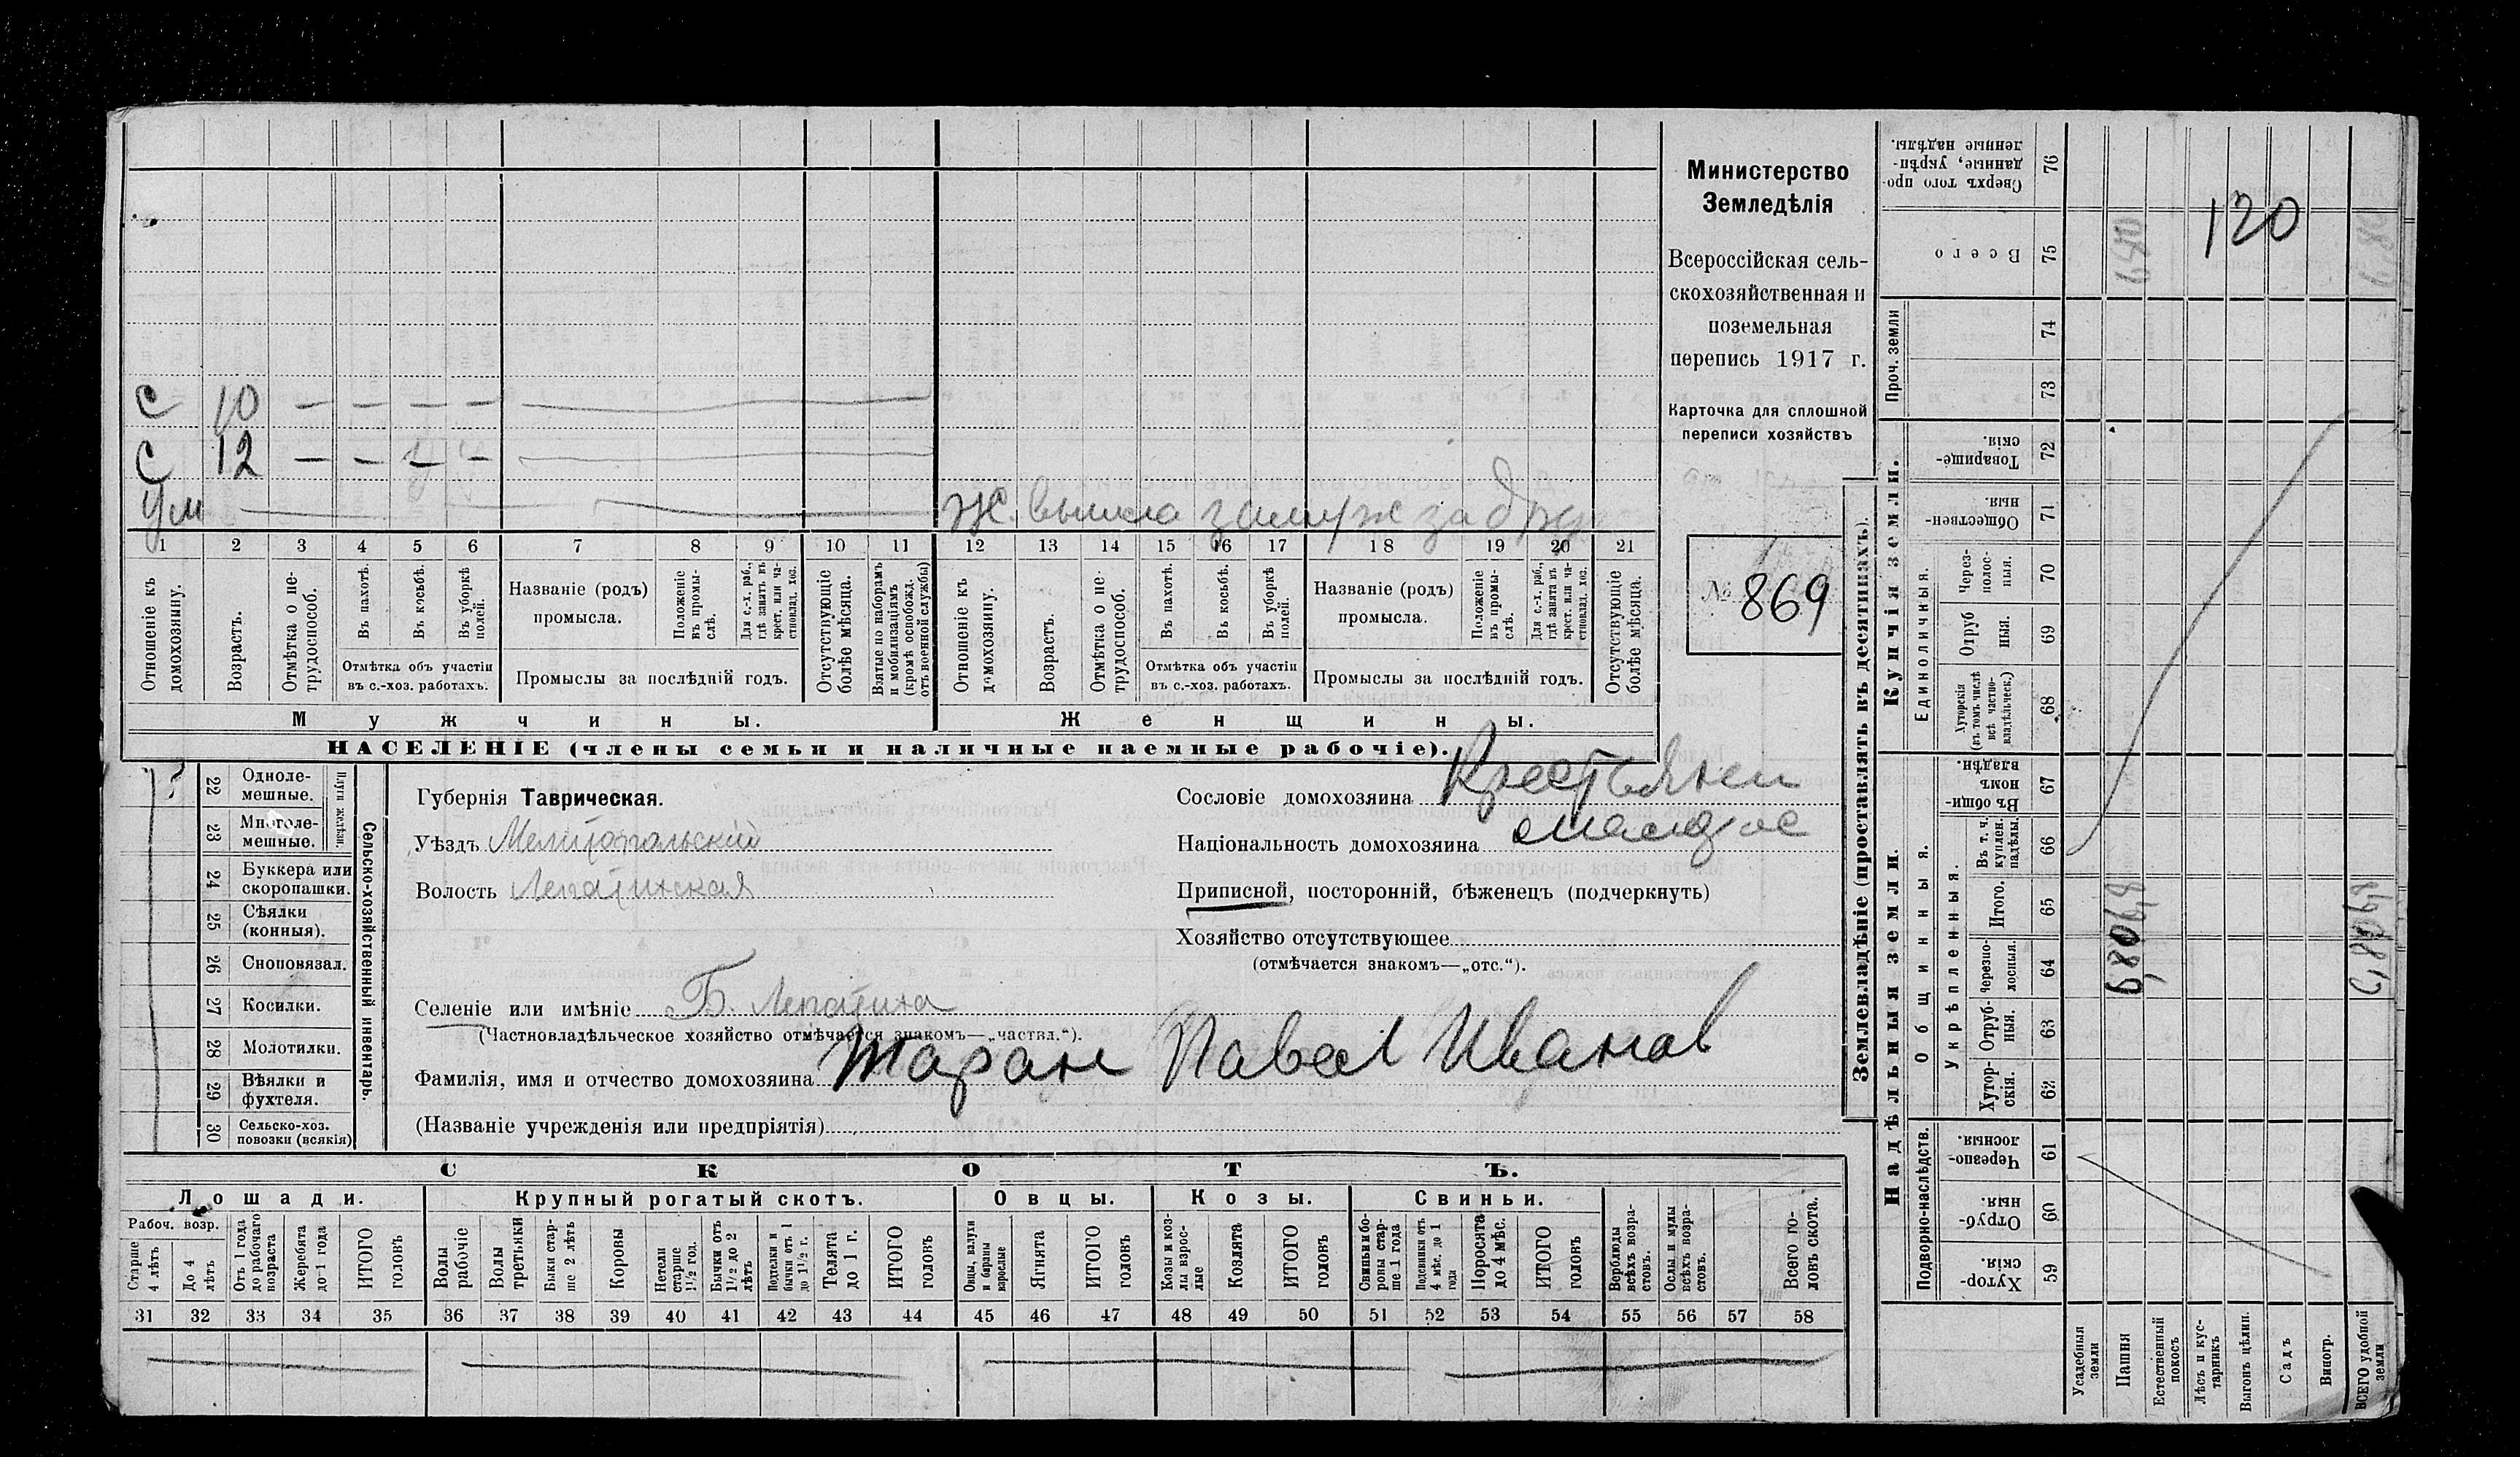 Министерство
Земледѣлія
Всероссійская сель-
скохозяйственная и
поземельная
перепись 1917 г.
Карточка для сплошной
переписи хозяйствъ
№ 869
С 10 — — — —
С 12 — — — —
Ум
Ж. вышла замуж за
1 2 3 4 5 6 7 8 9 10 11 12 13 14 15 16 17 18 19 20 21
Отношеніе къ домохозяину.
Возрастъ.
Отмѣтка о не-трудоспособ.
Въ пахотѣ.
Въ косьбѣ.
Въ уборкѣ полей.
Отмѣтка объ участіи
въ с.-хоз. работахъ.
Названіе (родъ)
промысла.
Положеніе въ промы-слѣ.
Для с.-х. раб., гдѣ занятъ въ крест. или ча-стновлад. хоз.
Промыслы за послѣдній годъ.
Отсутствующіе болѣе мѣсяца.
Взятые по наборамъ и мобилизаціямъ (кромѣ освобожд. отъ военной службы)
Отношеніе къ домохозяину.
Возрастъ.
Отмѣтка о не-трудоспособ.
Въ пахотѣ.
Въ косьбѣ.
Въ уборкѣ полей.
Отмѣтка объ участіи
въ с.-хоз. работахъ.
Названіе (родъ)
промысла.
Положеніе въ промы-слѣ.
Для с.-х. раб., гдѣ занята въ крест. или ча-стновлад. хоз.
Промыслы за послѣдній годъ.
Отсутствующіе болѣе мѣсяца.
Мужчины.
Женщины.
НАСЕЛЕНІЕ (члены семьи и наличные наемные рабочіе).
22 Одноле-мешные.
23 Многоле-мешные.
Плуги желѣзн.
24 Буккера или скоропашки.
25 Сѣялки (конныя).
26 Сноповязал.
27 Косилки.
28 Молотилки.
29 Вѣялки и фухтеля.
30 Сельско-хоз. повозки (всякія)
Сельско-хозяйственный инвентарь.
Губернія Таврическая.
Уѣздъ Мелитопольскій
Волость Лепатихская
Селеніе или имѣніе Б. Лепатиха
(Частновладѣльческое хозяйство отмѣчается знакомъ—„частвл.“).
Фамилія, имя и отчество домохозяина Таран Павел Иванов
(Названіе учрежденія или предпріятія)
Сословіе домохозяина Крестьянин
Національность домохозяина малорос
Приписной, посторонній, бѣженецъ (подчеркнуть)
Хозяйство отсутствующее
(отмѣчается знакомъ—„отс.“).
СКОТЪ.
Лошади.
Крупный рогатый скотъ.
Овцы.
Козы.
Свиньи.
Рабоч. возр.
Старше 4 лѣтъ
До 4 лѣтъ
Отъ 1 года до рабочаго возраста
Жеребята до 1 года
ИТОГО головъ
Волы рабочіе
Волы третьяки
Быки стар-ше 2 лѣтъ
Коровы
Нетели старше 1½ год.
Бычки отъ 1½ до 2 лѣтъ
Подтелки и бычки отъ 1 до 1½ г.
Телята до 1 г.
ИТОГО головъ
Овцы, валухи и бараны взрослые
Ягнята
ИТОГО головъ
Козы и коз-лы взрос-лые
Козлята
ИТОГО головъ
Свиньи и бо-ровы стар-ше 1 года
Подсвинки отъ 4 мѣс. до 1 года
Поросята до 4 мѣс.
ИТОГО головъ
Верблюды всѣхъ возра-стовъ.
Ослы и мулы всѣхъ возра-стовъ.
Всего го-ловъ скота.
31 32 33 34 35 36 37 38 39 40 41 42 43 44 45 46 47 48 49 50 51 52 53 54 55 56 57 58
Землевладѣніе (проставлять въ десятинахъ).
Надѣльныя земли.
Купчія земли.
Проч. земли
Подворно-наслѣдств.
Общинныя.
Укрѣпленныя.
Единоличныя.
Сверхъ того про-данные, укрѣп-ленные надѣлы. 76
Всего 75
74
73
Товарище-скія. 72
Обществен-ныя. 71
Через-полос-ныя. 70
Отруб ныя. 69
Хуторскія (въ томъ числѣ всѣ частно-владѣльческ.) 68
Въ общин-номъ владѣн. 67
Въ т. ч. куплен. надѣлы. 66
Итого. 65
Черезпо-лосныя. 64
Отруб-ныя. 63
Хутор-скія. 62
Черезпо-лосныя. 61
Отруб-ныя. 60
Хутор-скія. 59
120
Усадебныя земли
Пашня
Естественный покосъ
Лѣсъ и кус-тарникъ
Выгонъ цѣлин.
Садъ
Виногр.
ВСЕГО удобной земли